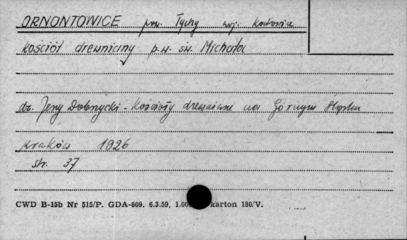 ORNONTOWICE pow. Tychy woj. katowice
kościół drewniany p.w. św. Michała
dz. Jerzy Dobrzycki - Kościoły drewniane na Górnym Śląsku
Kraków 1926
str. 37
CWD B-15b Nr 515/P. GDA-809. 6.3.59. 1.00 karton 180/V.